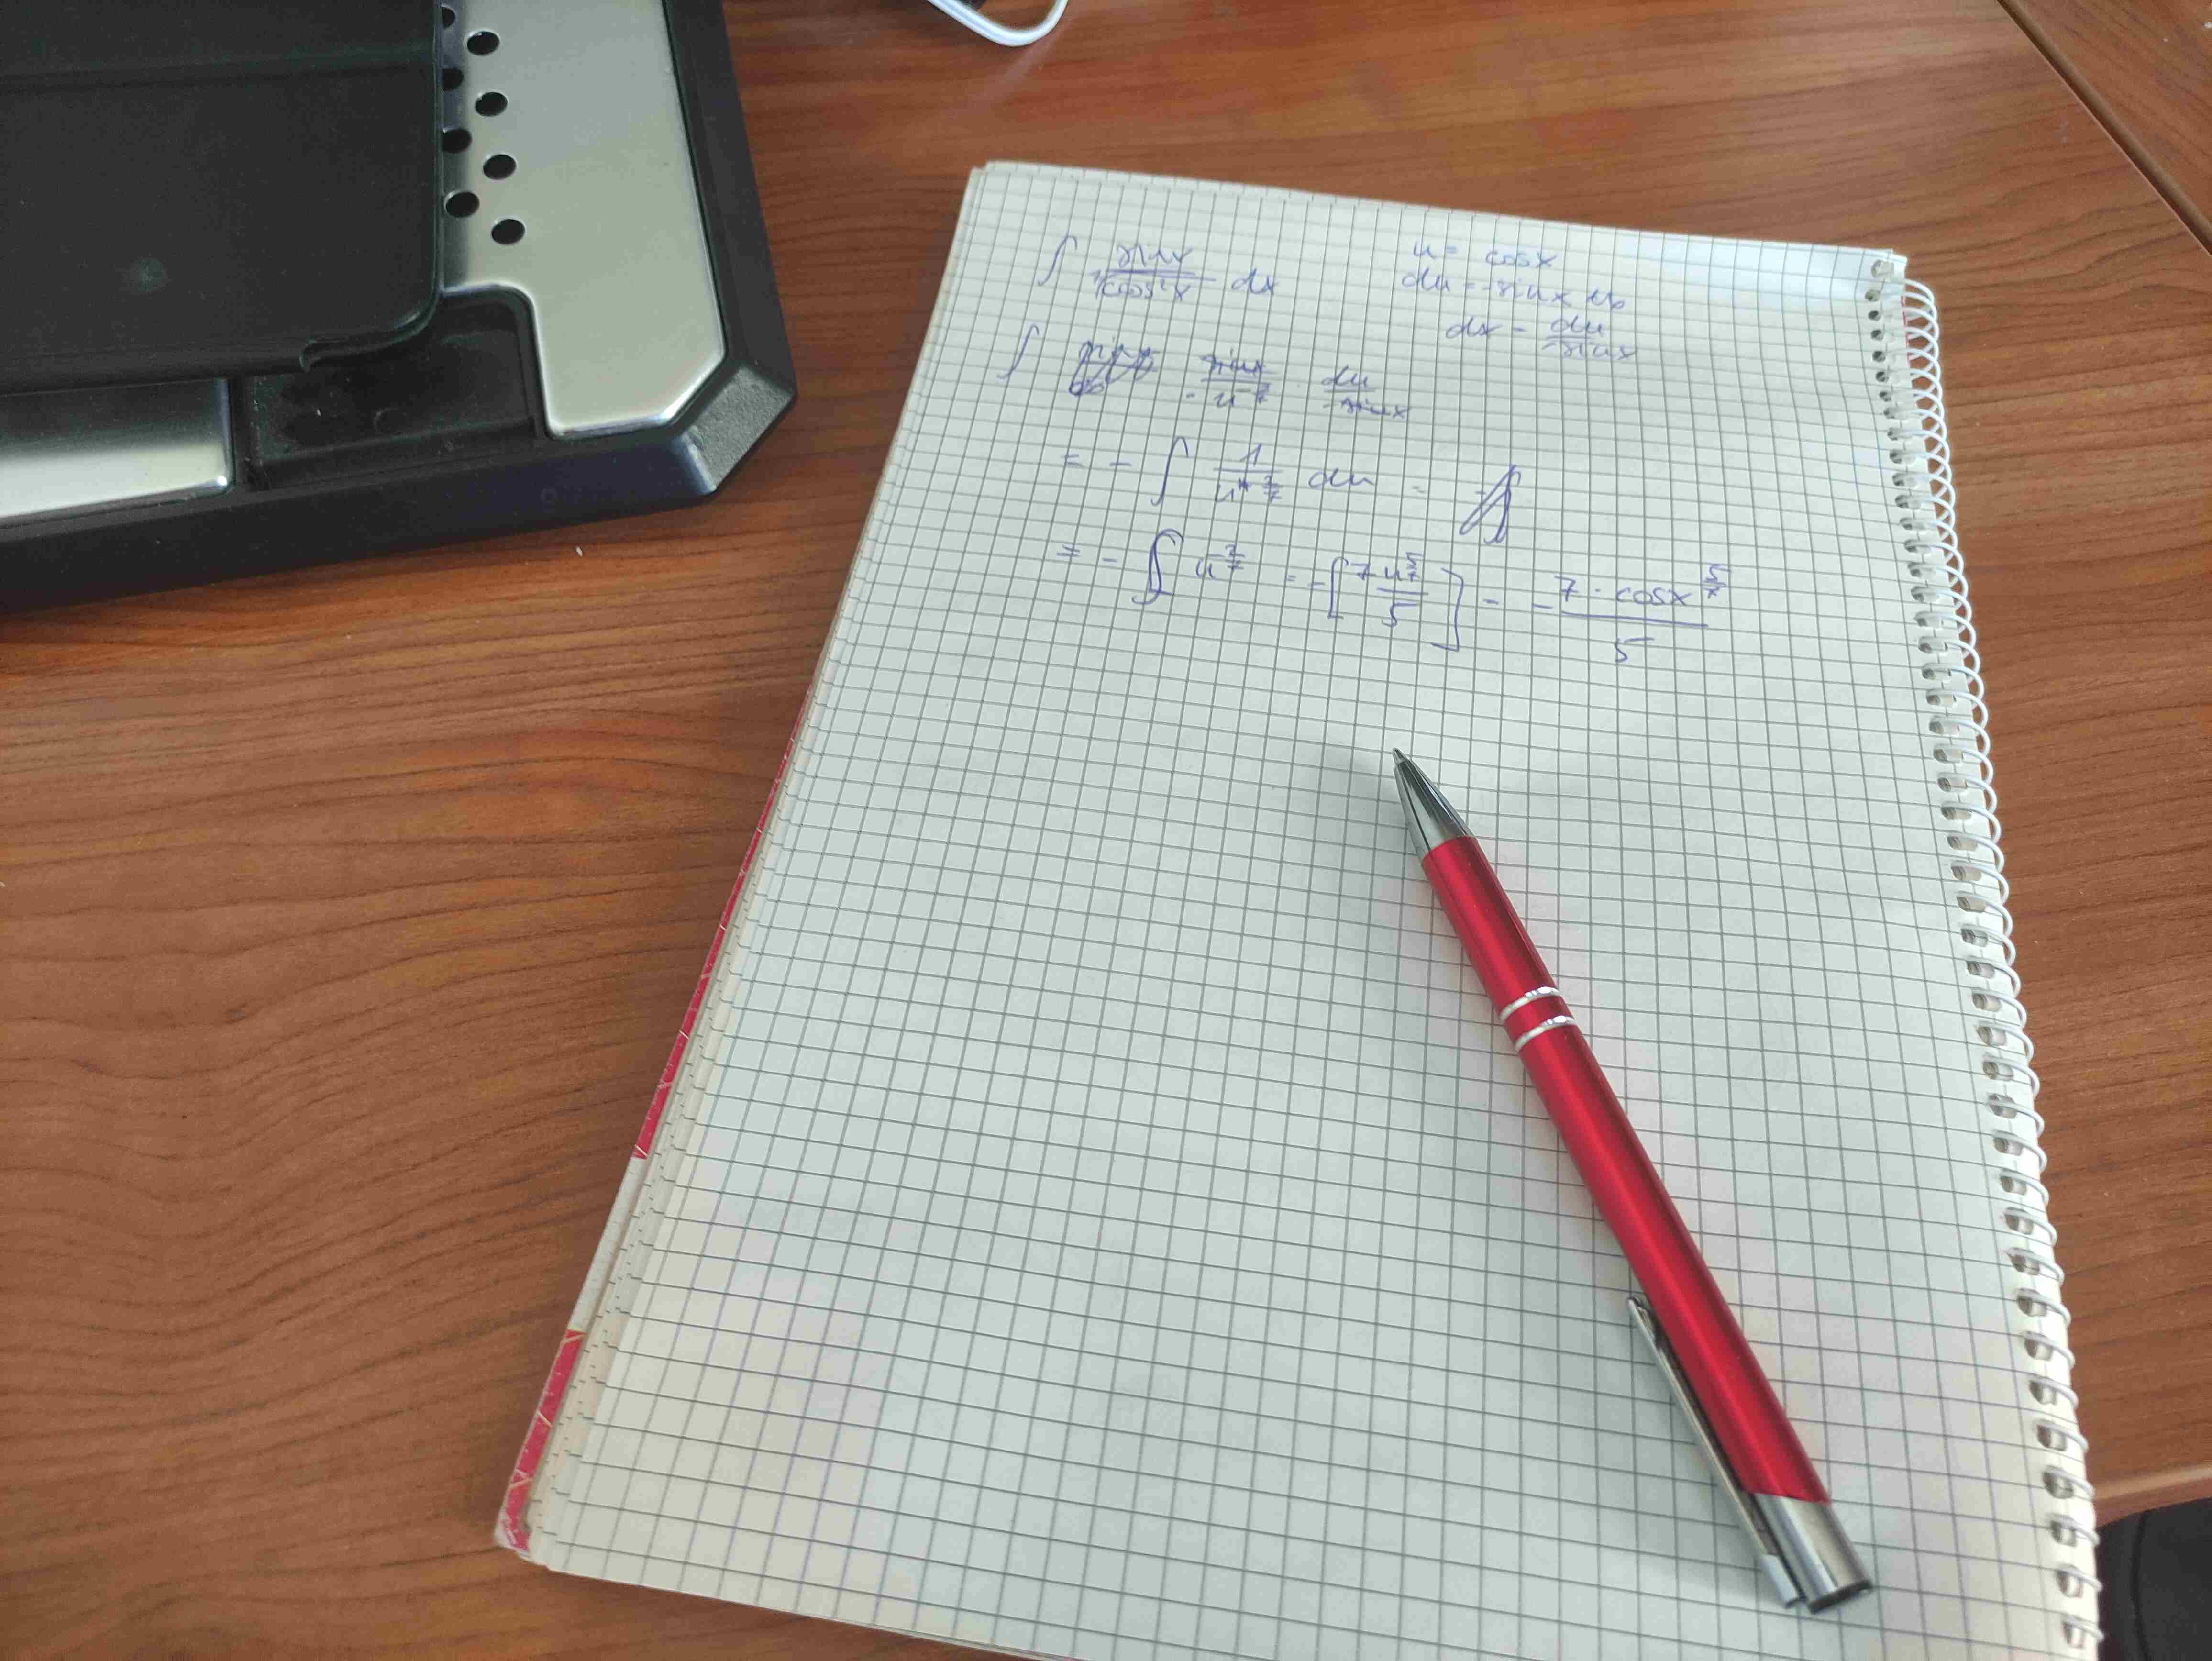 ∫ sinx / ⁷√cos²x dx u = cosx
du = -sinx dx
dx = du / -sinx
∫ sinx / u^(2/7) · du / -sinx
= - ∫ 1 / u^(2/7) du =
= - ∫ u^(-2/7) = - [ 7 u^(5/7) / 5 ] = - 7 · cosx^(5/7) / 5